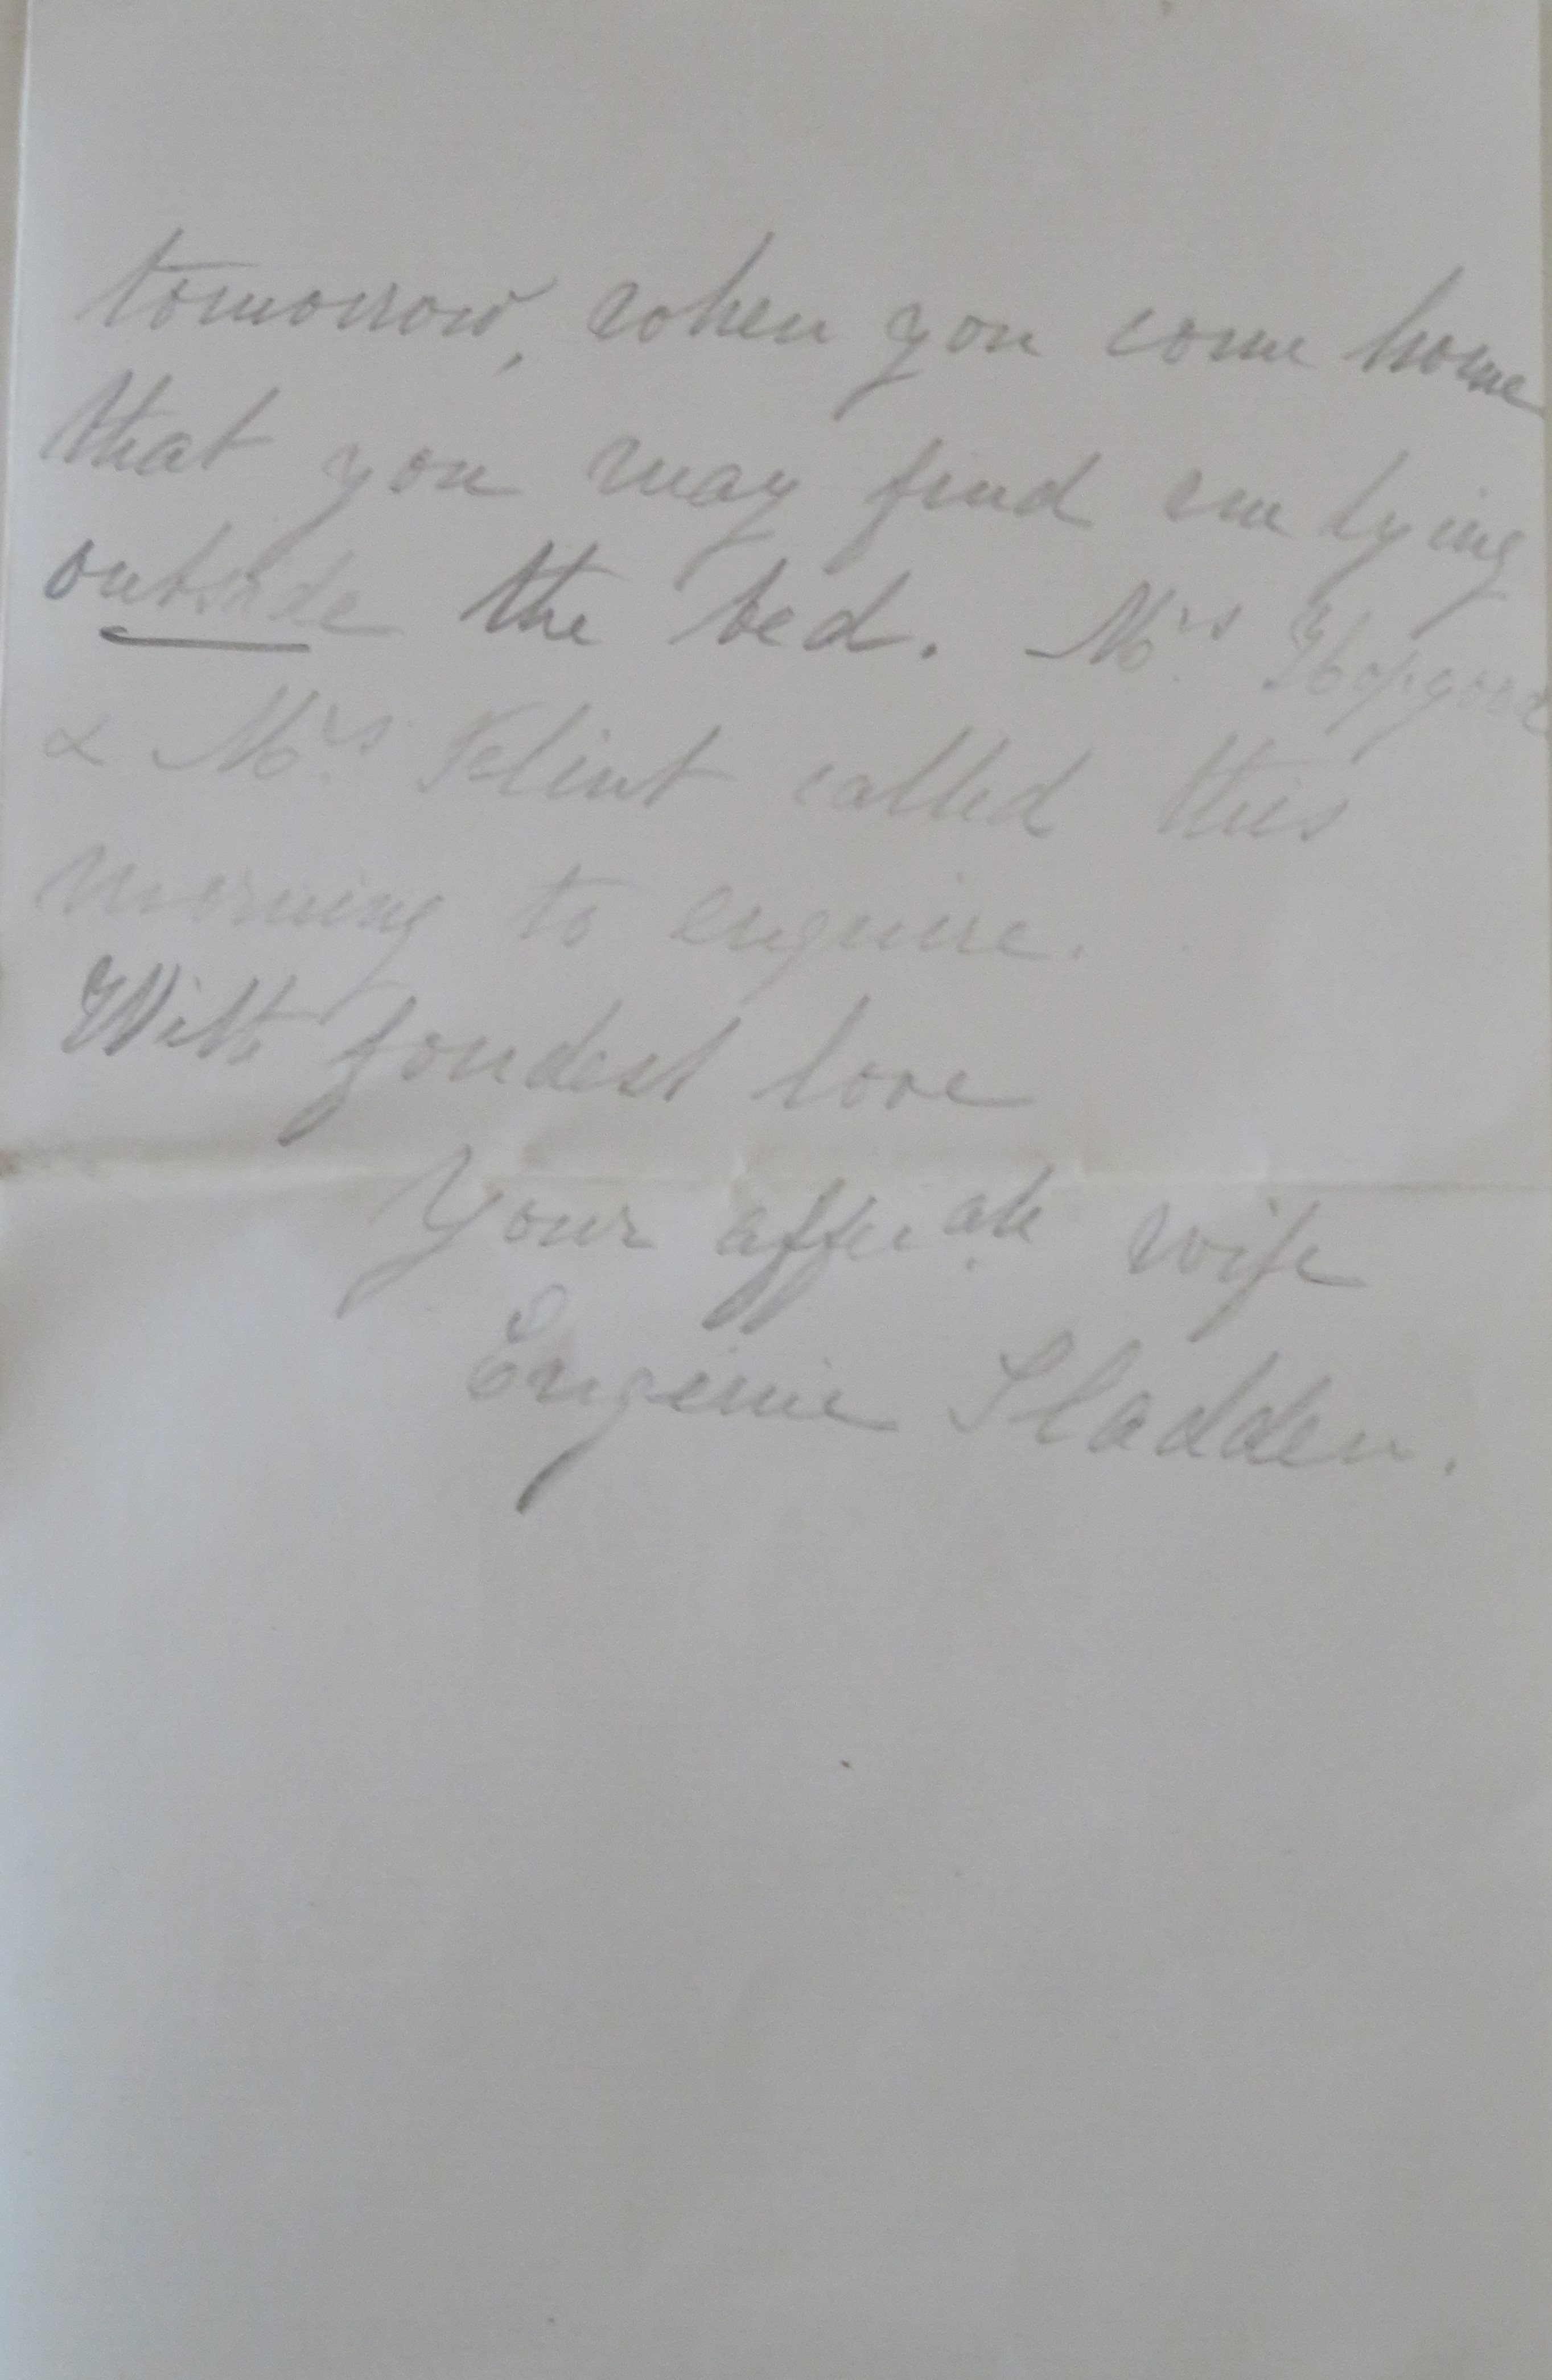 tomorrow, when you come home
that you may find me lying
outside the bed. Mrs Hopgood
& Mrs Flint called this
morning to enquire.
With fondest love
Your affecate wife
Eugénie Sladden.